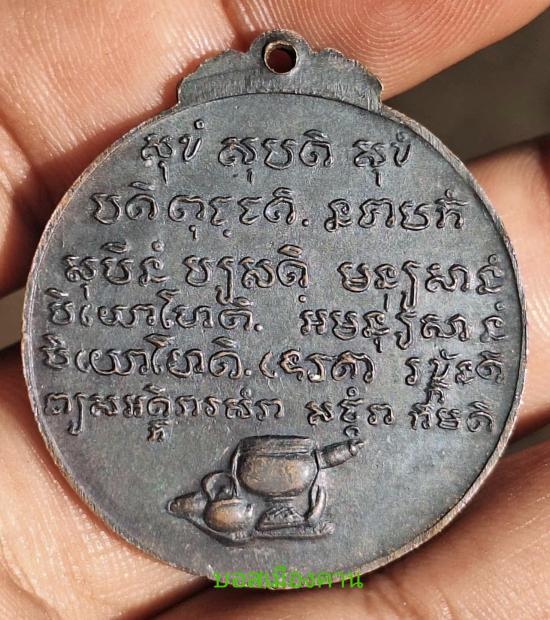 សុខំ សុបតិ សុខំ
បតិពុជ្ឈតិ. នបាបកំ
សុបិនំ បស្សតិ មនុស្សានំ
បិយោហោតិ. អមនុស្សានំ
បិយោហោតិ. ទេវតា រក្ខន្តិ
សត្ថំវា កមតិ
บอสเมืองคาน